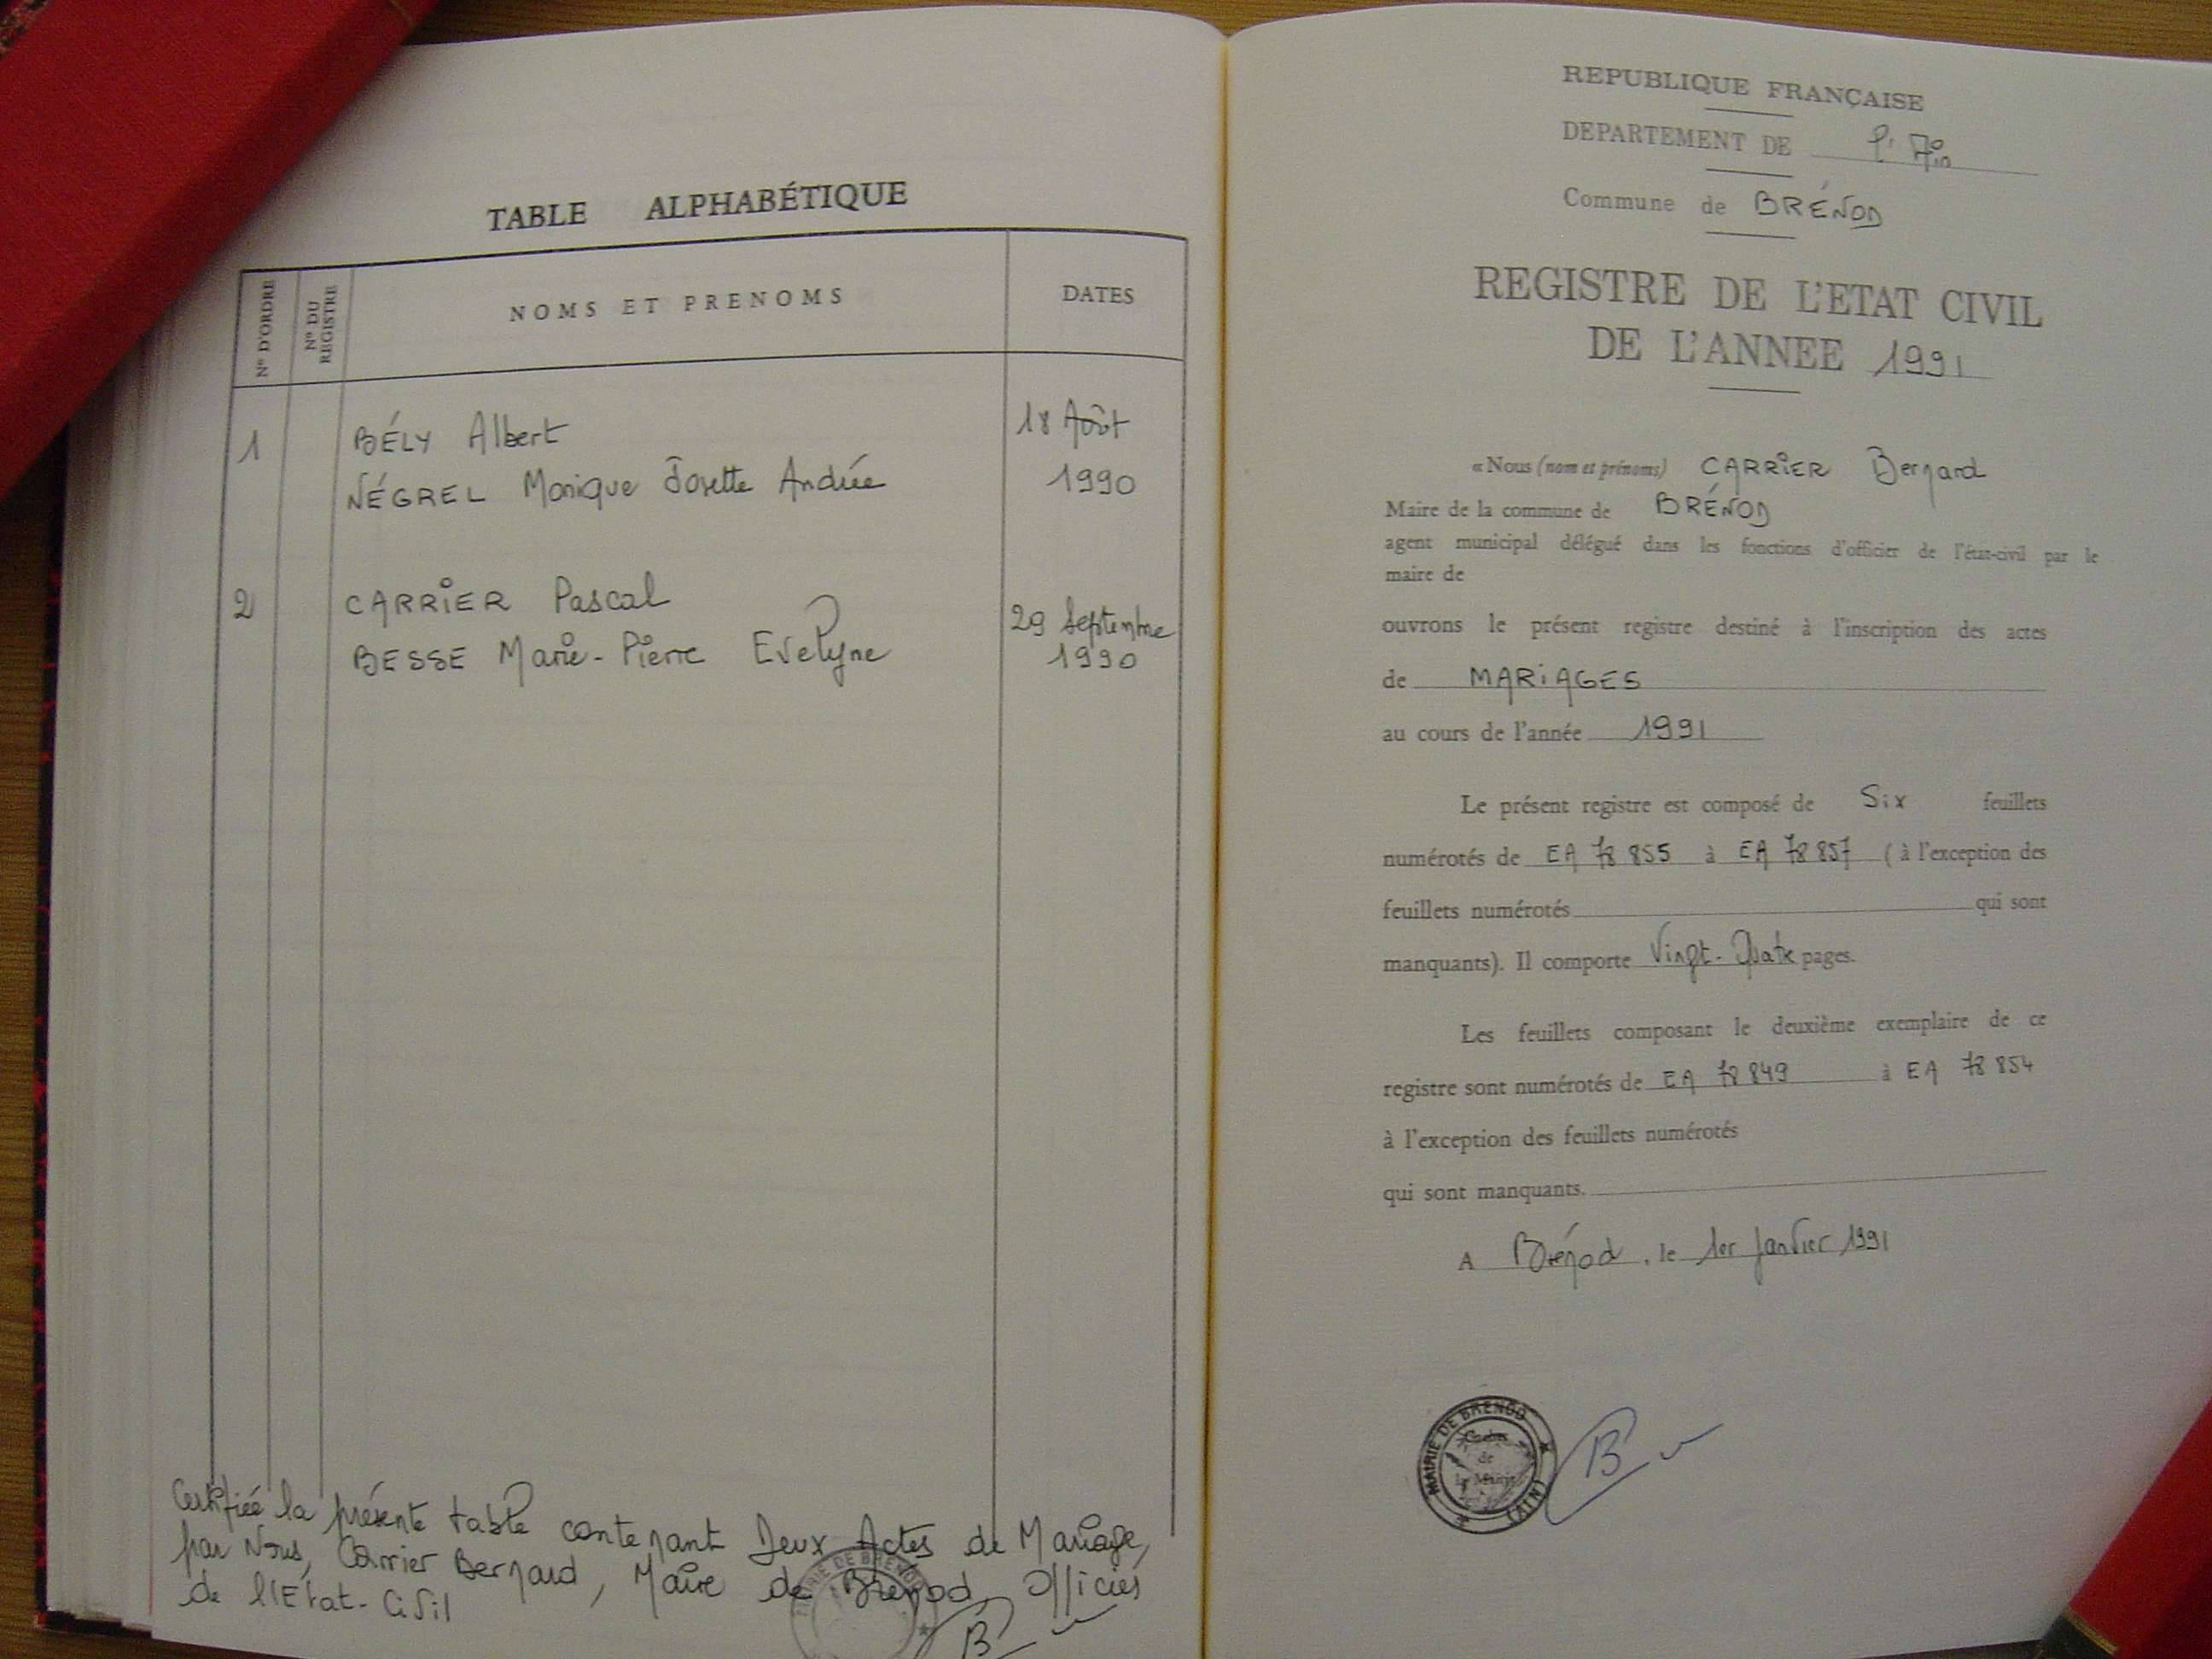 TABLE ALPHABÉTIQUE
N° D'ORDRE
N° DU REGISTRE
NOMS ET PRENOMS
DATES
1 BÉLY Albert 18 Août
NÉGREL Monique Josette Andrée 1990
2 CARRIER Pascal 29 Septembre
BESSE Marie-Pierre Evelyne 1990
Certifiée la présente table contenant Deux Actes de Mariage,
par Nous, Carrier Bernard, Maire de Brénod, Officier
de l'Etat-Civil
MAIRIE DE BRENOD
REPUBLIQUE FRANÇAISE
DEPARTEMENT DE l'Ain
Commune de BRÉNOD
REGISTRE DE L'ETAT CIVIL
DE L'ANNEE 1991
« Nous (nom et prénoms) CARRIER Bernard
Maire de la commune de BRÉNOD
agent municipal délégué dans les fonctions d'officier de l'état-civil par le
maire de
ouvrons le présent registre destiné à l'inscription des actes
de MARIAGES
au cours de l'année 1991
Le présent registre est composé de Six feuillets
numérotés de EA 78 855 à EA 78 857 (à l'exception des
feuillets numérotés qui sont
manquants). Il comporte Vingt-Quatre pages.
Les feuillets composant le deuxième exemplaire de ce
registre sont numérotés de EA 78 849 à EA 78 854
à l'exception des feuillets numérotés
qui sont manquants.
A Brénod, le 1er Janvier 1991
MAIRIE DE BRENOD
de
la Mairie
(AIN)